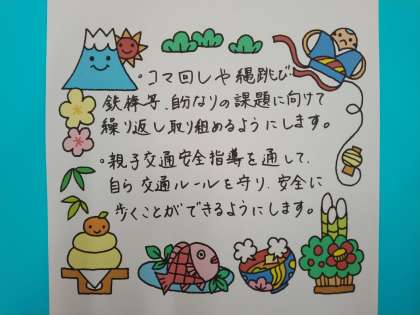 ・コマ回しや縄跳び
鉄棒等、自分なりの課題に向けて
繰り返し取り組めるようにします。
・親子交通安全指導を通して、
自ら交通ルールを守り、安全に
歩くことができるようにします。